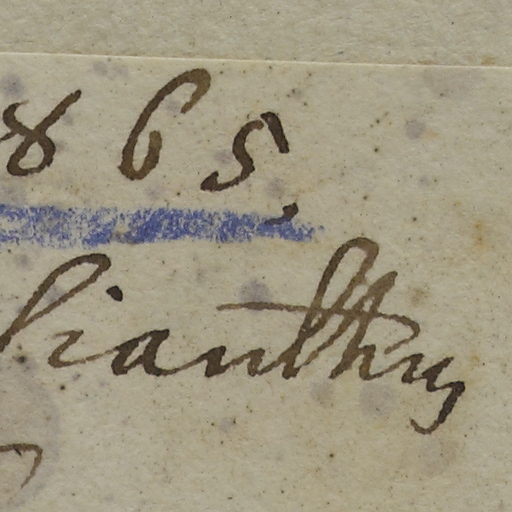 865.
lianthus